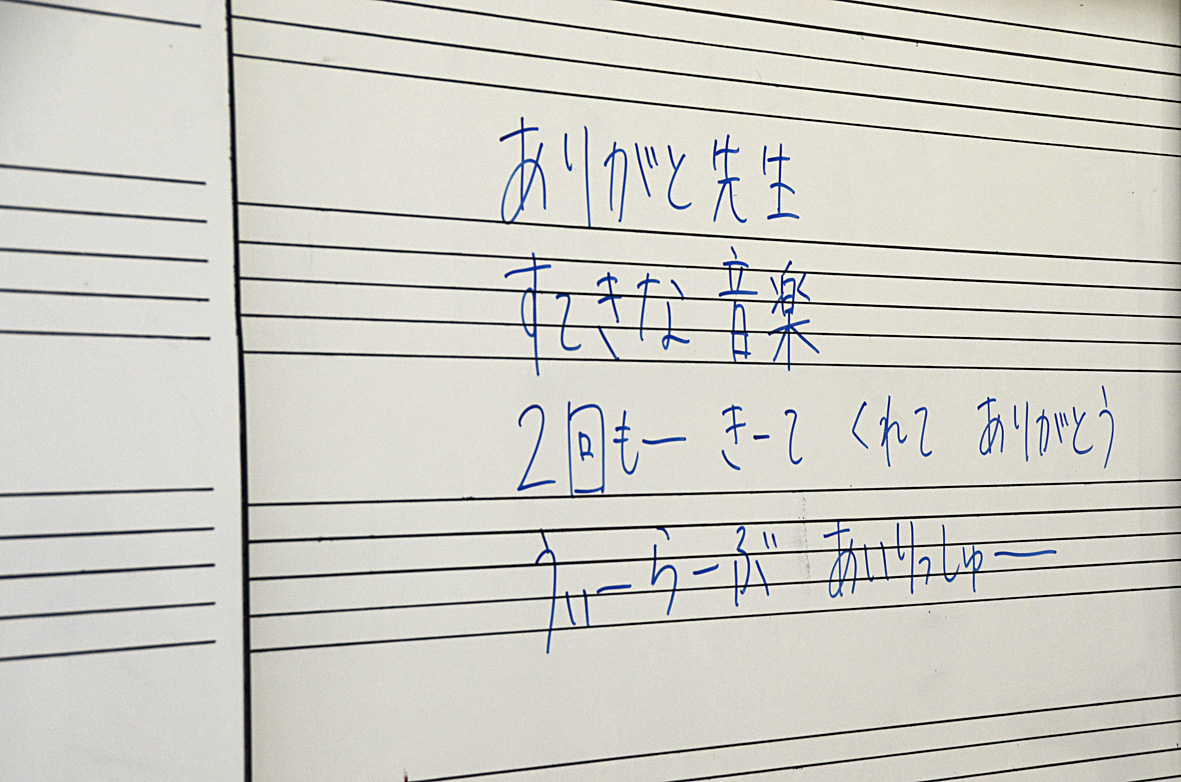 ありがと先生
すてきな音楽
2回もー きーて くれて ありがとう
うぃーらーぶ あいりっしゅー